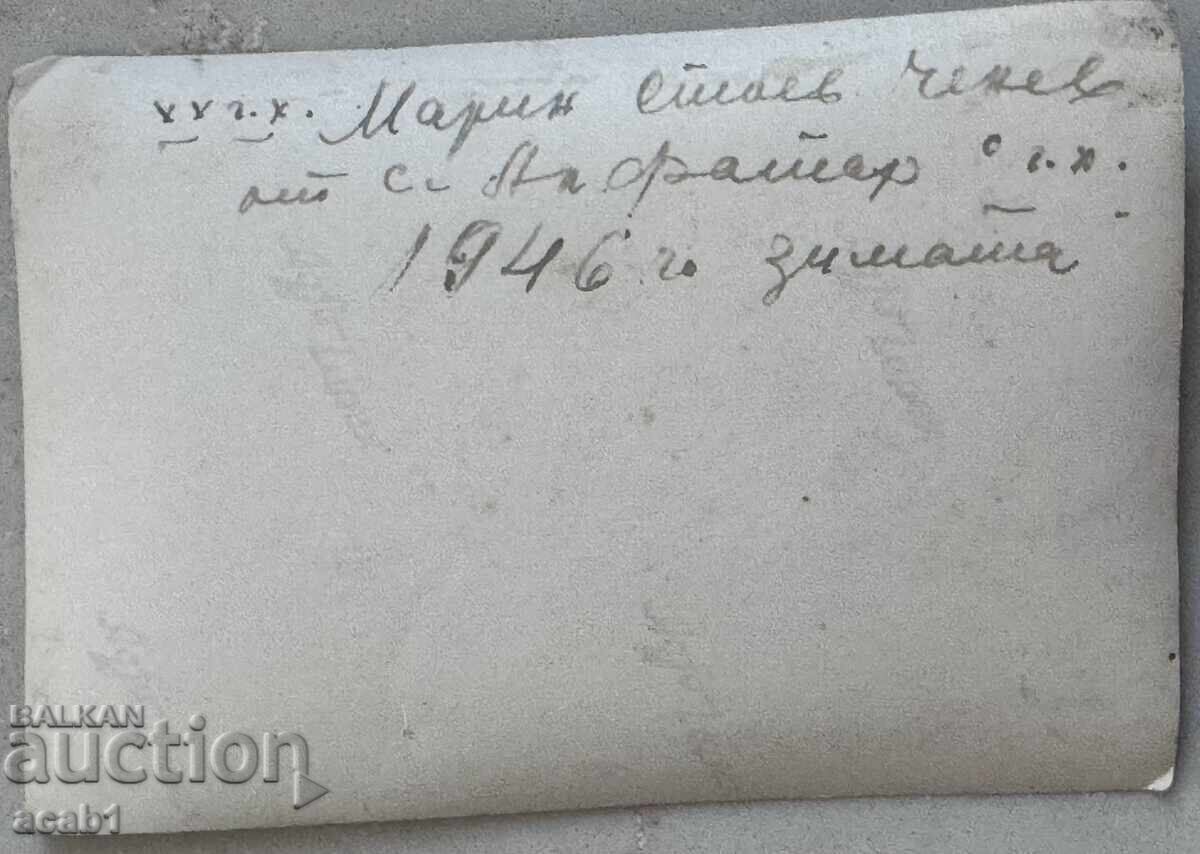 хх г.х. Марин Стоев Ченев
от с. Ал фатар с г.х.
1946 г. зимата
BALKAN
auction
acab1